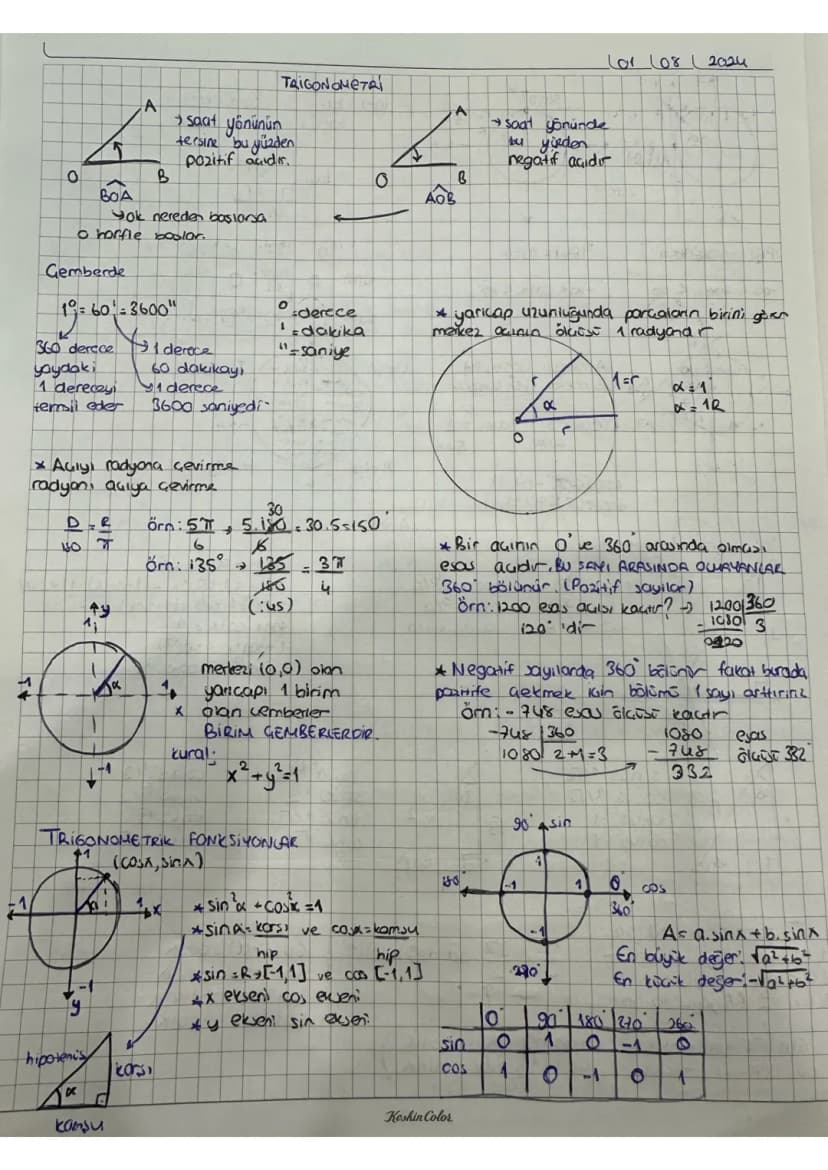 01 08 2024
TRİGONOMETRİ
A
→ saat yönünün
tersine bu yüzden
pozitif açıdır.
O B
BOA
A
→ saat yönünde
bu yüzden
negatif açıdır
O B
AOB
↳ ok nereden başlarsa
o harfle başlar.
Çemberde
1° = 60' = 3600"
° = derece
' = dakika
" = saniye
360 derece
yaydaki
1 dereceyi
temsil eder
→ 1 derece
60 dakikayı
↳ 1 derece
3600 saniyedir
* yarıçap uzunluğunda parçaların birini gören
merkez açının ölçüsü 1 radyandır
r 1=r
α
O r
α = 1°
α = 1R
* Açıyı radyana çevirme
radyanı açıya çevirme
D/180 = R/π
örn: 5π/6 → 5.180/6 = 30.5=150°
30
örn: 135° → 135/180 = 3π/4
(:45)
* Bir açının 0° ve 360° arasında olması
esas açıdır. BU SAYI ARASINDA OLMAYANLAR
360° bölünür. (Pozitif sayılar)
örn: 1200 esas açısı kaçtır? → 1200 | 360
- 1080 3
0120
120° 'dir
y
1
-1 α 1
x
-1
merkezi (0,0) olan
yarıçapı 1 birim
olan çemberler
BİRİM ÇEMBERLERDİR.
kural:
x²+y²=1
* Negatif sayılarda 360° bölünür fakat burada
pozitife çekmek için bölümü 1 sayı arttırırız
örn: -748 esas ölçüsü kaçtır
-748 | 360
1080 2+1=3
1080
- 748
332
esas
ölçüsü 332°
TRİGONOMETRİK FONKSİYONLAR
1
(cosx, sinx)
-1 α 1 x
-1
y
* sin²α + cos²x = 1
* sinα = karşı/hip ve cosα = komşu/hip
* sin = R→[-1,1] ve cos [-1,1]
* x ekseni cos ekseni
* y ekseni sin ekseni
hipotenüs
karşı
α
komşu
90° sin
1
180° -1 1 0° cos
360°
-1
270°
A = a.sinx + b.sinx
En büyük değer: √a²+b²
En küçük değer: -√a²+b²
0° 90° 180° 270° 360°
sin 0 1 0 -1 0
cos 1 0 -1 0 1
KeskinColor